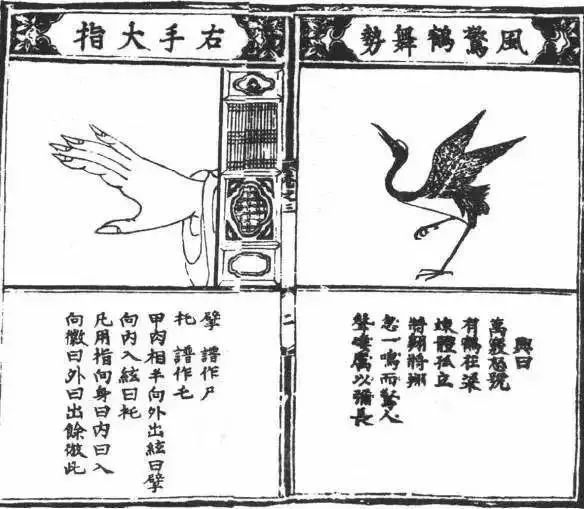 風驚鶴舞勢
興曰
萬竅怒號
有鶴在梁
竦體孤立
將翺將翔
忽一鳴而驚人
聲厲以彌長
之三
二
右手大指
擘 譜作尸
托 譜作乇
甲肉相半向外出絃曰擘
向內入絃曰托
凡用指向身曰內曰入
向徽曰外曰出餘倣此